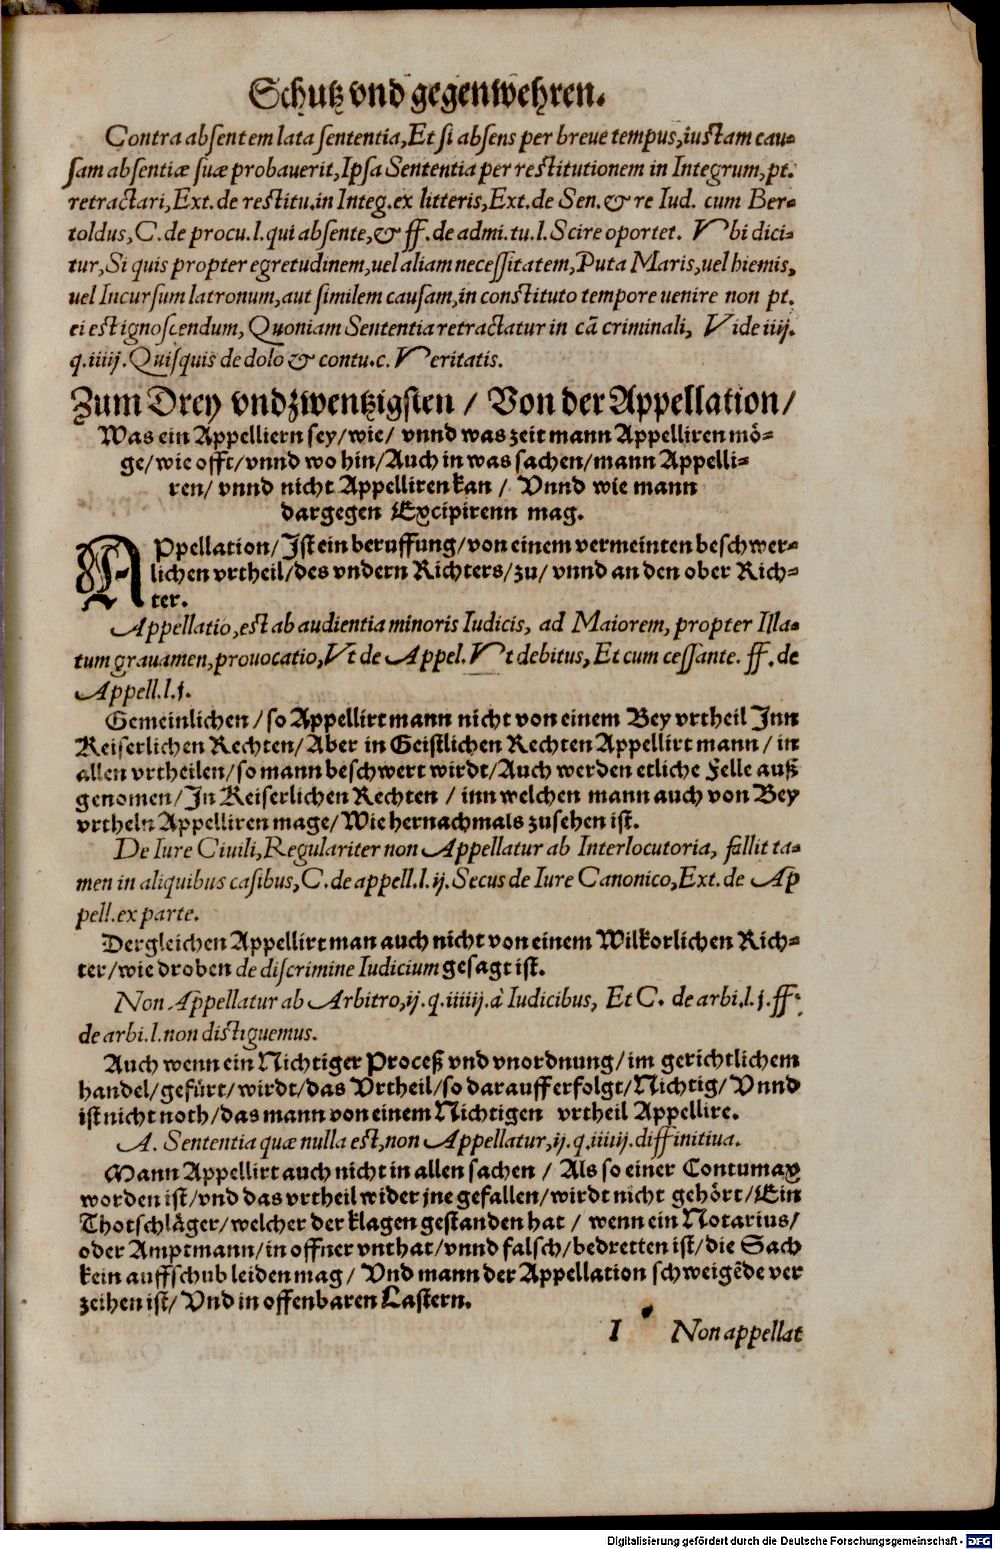 Schutz vnd gegenwehren.
Contra absentem lata sententia, Et si absens per breue tempus, iustam cau-
sam absentiæ suæ probauerit, Ipsa Sententia per restitutionem in Integrum, pt.
retractari, Ext. de restitu. in Integ. ex litteris, Ext. de Sen. & re Iud. cum Ber-
toldus, C. de procu. l. qui absente, & ff. de admi. tu. l. Scire oportet. Vbi dici-
tur, Si quis propter egretudinem, uel aliam necessitatem, Puta Maris, uel hiemis,
uel Incursum latronum, aut similem causam, in constituto tempore uenire non pt.
ei est ignoscendum, Quoniam Sententia retractatur in cā criminali, Vide iiij.
q. iiiij. Quisquis de dolo & contu. c. Veritatis.
Zum Drey vndzwentzigsten / Von der Appellation /
Was ein Appelliern sey / wie / vnnd was zeit mann Appelliren mö-
ge / wie offt / vnnd wo hin / Auch in was sachen / mann Appelli-
ren / vnnd nicht Appelliren kan / Vnnd wie mann
dargegen Excipirenn mag.
APpellation / Ist ein beruffung / von einem vermeinten beschwer-
lichen vrtheil / des vndern Richters / zu / vnnd an den ober Rich-
ter.
Appellatio, est ab audientia minoris Iudicis, ad Maiorem, propter Illa-
tum grauamen, prouocatio, Vt de Appel. Vt debitus, Et cum cessante. ff. de
Appell. l. j.
Gemeinlichen / so Appellirt mann nicht von einem Bey vrtheil Inn
Keiserlichen Rechten / Aber in Geistlichen Rechten Appellirt mann / in
allen vrtheilen / so mann beschwert wirdt / Auch werden etliche Felle auß
genomen / In Keiserlichen Rechten / inn welchen mann auch von Bey
vrtheln Appelliren mage / Wie hernachmals zusehen ist.
De Iure Ciuili, Regulariter non Appellatur ab Interlocutoria, fallit ta-
men in aliquibus casibus, C. de appell. l. ij. Secus de Iure Canonico, Ext. de Ap
pell. ex parte.
Dergleichen Appellirt man auch nicht von einem Wilkorlichen Rich-
ter / wie droben de discrimine Iudicium gesagt ist.
Non Appellatur ab Arbitro, ij. q. iiiiij. à Iudicibus, Et C. de arbi. l. j. ff.
de arbi. l. non distiguemus.
Auch wenn ein Nichtiger Proceß vnd vnordnung / im gerichtlichem
handel / gefürt / wirdt / das Vrtheil / so darauff erfolgt / Nichtig / Vnnd
ist nicht noth / das mann von einem Nichtigen vrtheil Appellire.
A. Sententia quæ nulla est, non Appellatur, ij. q. iiiiij. diffinitiua.
Mann Appellirt auch nicht in allen sachen / Als so einer Contumax
worden ist / vnd das vrtheil wider jne gefallen / wirdt nicht gehört / Ein
Thotschläger / welcher der klagen gestanden hat / wenn ein Notarius /
oder Amptmann / in offner vnthat / vnnd falsch / bedretten ist / die Sach
kein auffschub leiden mag / Vnd mann der Appellation schweigēde ver
zeihen ist / Vnd in offenbaren Lastern.
I Non appellat
Digitalisierung gefördert durch die Deutsche Forschungsgemeinschaft - DFG